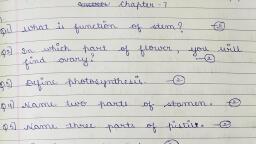 Chapter - 7
Q1) What is function of stem? - 2
Q2) In which part of flower, you will
find ovary? - 2
Q3) Define photosynthesis. - 2
Q4) Name two parts of stamen. - 2
Q5) Name three parts of pistil. - 2